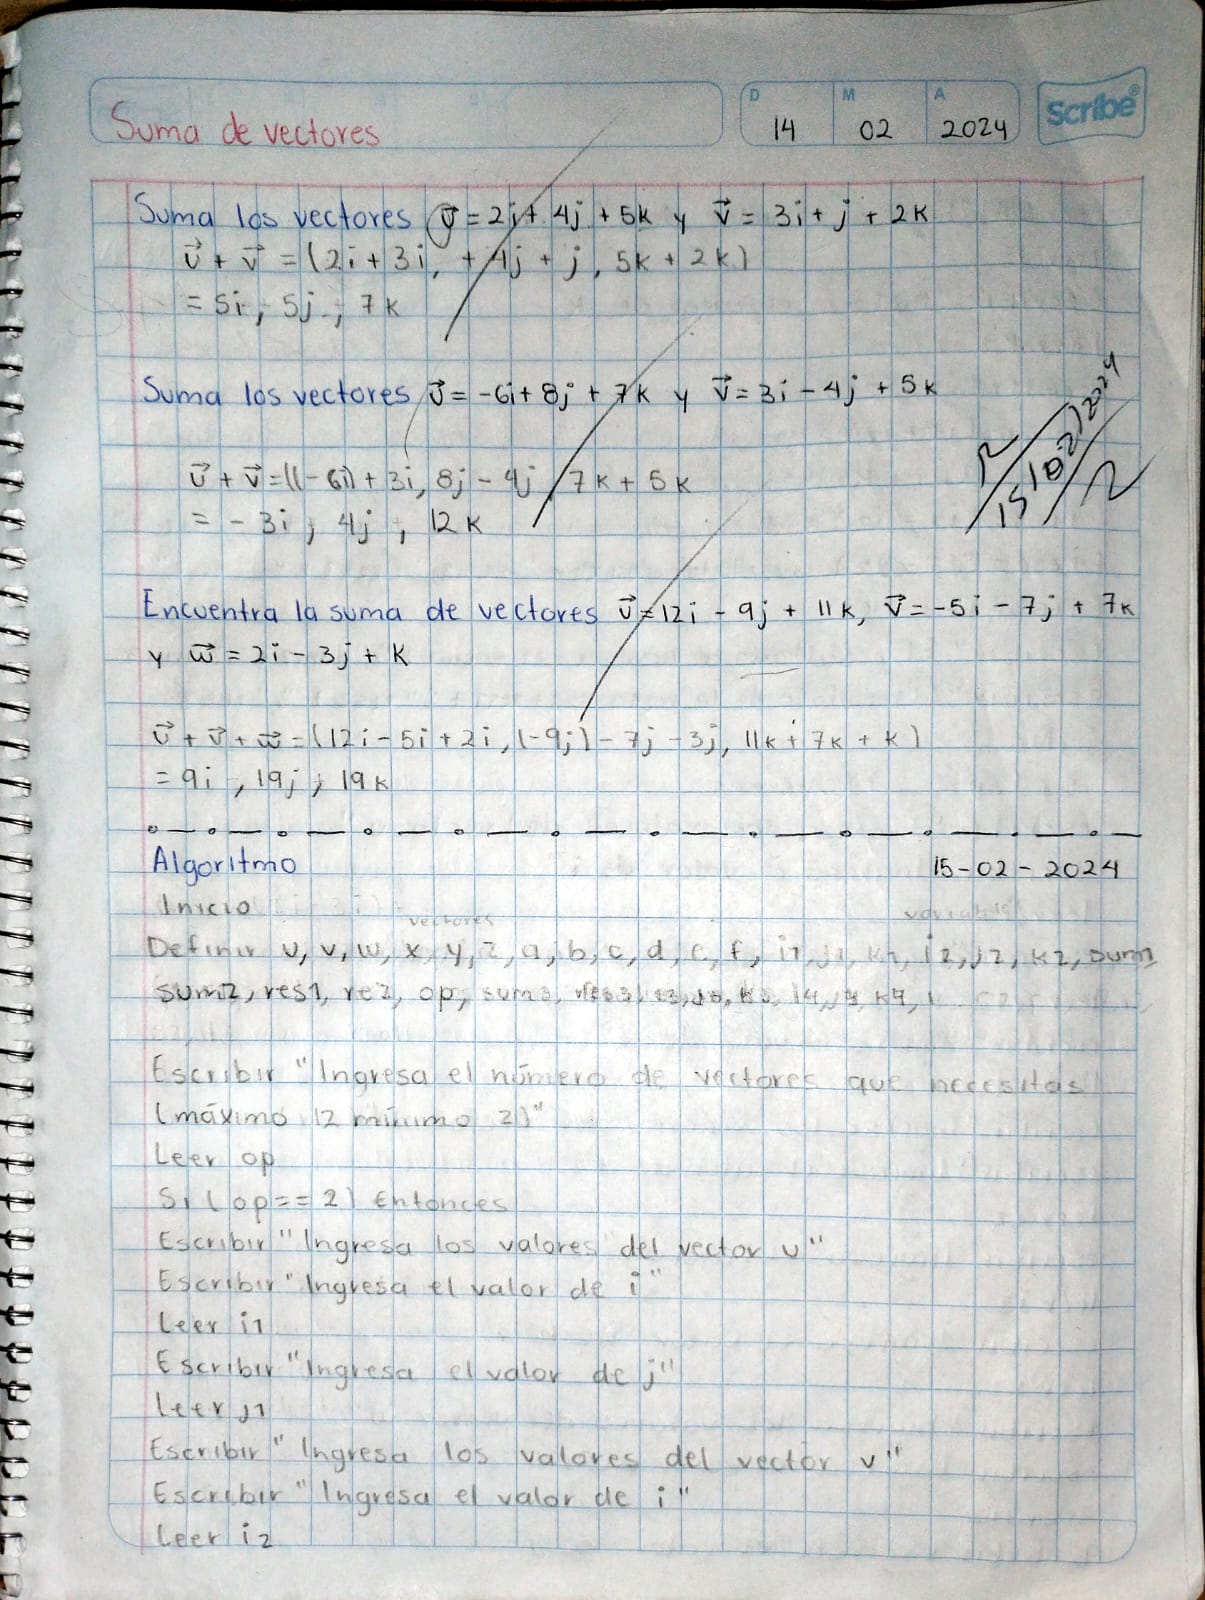 Suma de vectores
D M A
14 02 2024
Scribe®
Suma los vectores u⃗ = 2i + 4j + 5k y v⃗ = 3i + j + 2k
u⃗ + v⃗ = (2i + 3i, + 4j + j, 5k + 2k)
= 5i, 5j, 7k
Suma los vectores u⃗ = -6i + 8j + 7k y v⃗ = 3i - 4j + 5k
15/02/2024
u⃗ + v⃗ = ((-6i) + 3i, 8j - 4j, 7k + 5k
= -3i, 4j, 12k
Encuentra la suma de vectores u⃗ = 12i - 9j + 11k, v⃗ = -5i - 7j + 7k
y w⃗ = 2i - 3j + k
u⃗ + v⃗ + w⃗ = (12i - 5i + 2i, (-9j) - 7j - 3j, 11k + 7k + k)
= 9i, 19j, 19k
Algoritmo 15-02-2024
Inicio
vectores variable
Definir u, v, w, x, y, z, a, b, c, d, e, f, i1, j1, k1, i2, j2, k2, sum1
sum2, res1, re2, op, sum3, res3, i3, j3, k3, i4, j4, k4,
Escribir "Ingresa el número de vectores que necesitas
(máximo 12 mínimo 2)"
Leer op
Si (op == 2) Entonces
Escribir "Ingresa los valores del vector u"
Escribir "Ingresa el valor de i"
Leer i1
Escribir "Ingresa el valor de j"
Leer j1
Escribir "Ingresa los valores del vector v"
Escribir "Ingresa el valor de i"
Leer i2